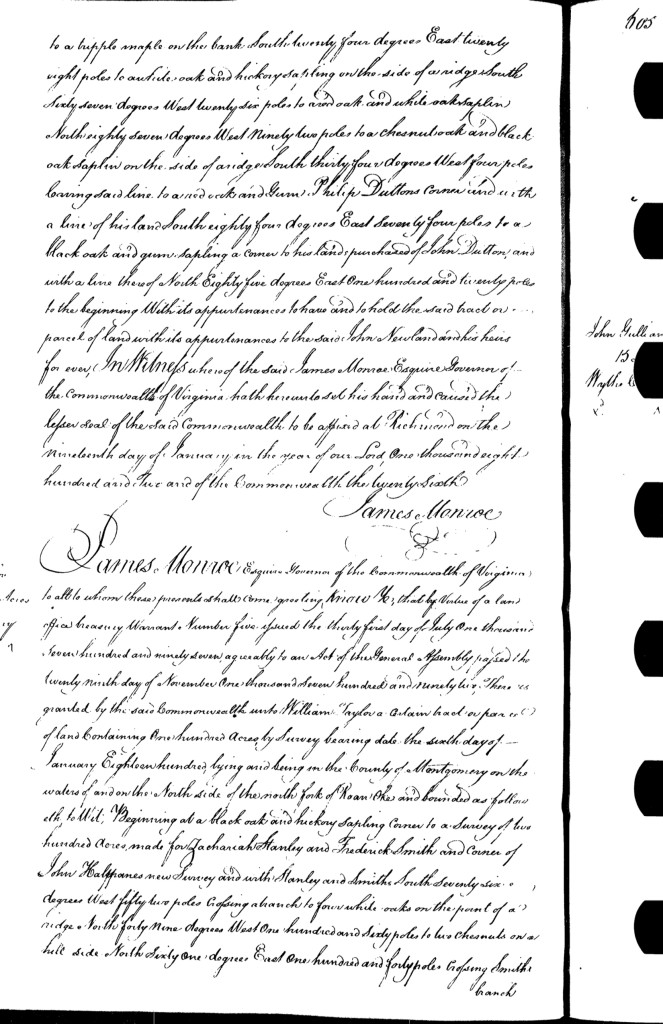 to a tripple maple on the bank South twenty four degrees East twenty
eight poles to a white oak and hickory sapling on the side of a ridge South
Sixty seven degrees West twenty six poles to a red oak and white oak saplin
North eighty seven degrees West Ninety two poles to a chesnut oak and black
oak saplin on the side of a ridge South thirty four degrees West four poles
leaving said line to a red oak and Gum Philip Duttons Corner and with
a line of his land South eighty four degrees East Seventy four poles to a
black oak and gum sapling a corner to his land purchased of John Dutton and
with a line there of North Eighty five degrees East One hundred and twenty poles
to the beginning With its appurtenances to have and to hold the said tract or
parcel of land with its appurtenances to the said John Newland and his heirs
for ever, In Witness where of the said James Monroe Esquire Governor of
the Commonwealth of Virginia hath hereunto set his hand and caused the
lesser seal of the said Commonwealth to be affixed at Richmond on the
nineteenth day of January in the year of our Lord One thousand eight
hundred and Two and of the Commonwealth the twenty Sixth
James Monroe
James Monroe Esquire Governor of the Commonwealth of Virginia
to all to whom these presents shall Come greeting Know Ye, that by Virtue of a land
office treasury Warrant Number five issued the thirty first day of July One thousand
Seven hundred and ninety seven, agreeably to an Act of the General Assembly passed the
twenty ninth day of November One thousand Seven hundred and ninety two. There is
granted by the said Commonwealth unto William Taylor a Certain tract or parcel
of land Containing One hundred Acres by Survey bearing date the sixth day of
January Eighteen hundred, lying and being in the County of Montgomery on the
waters of and on the North side of the north fork of Roan Oke and bounded as follow
eth to Wit; Beginning at a black oak and hickory sapling Corner to a Survey of two
hundred Acres made for Zachariah Stanley and Frederick Smith and Corner of
John Halfpanes new Survey and with Stanley and Smiths South seventy six
degrees West fifty two poles Crossing a branch to four white oaks on the point of a
ridge North forty nine degrees West One hundred and Sixty poles to two chesnuts on a
hill side North Sixty One degrees East One hundred and forty poles Crossing Smiths
branch
Acres
605
John
15
Wythe